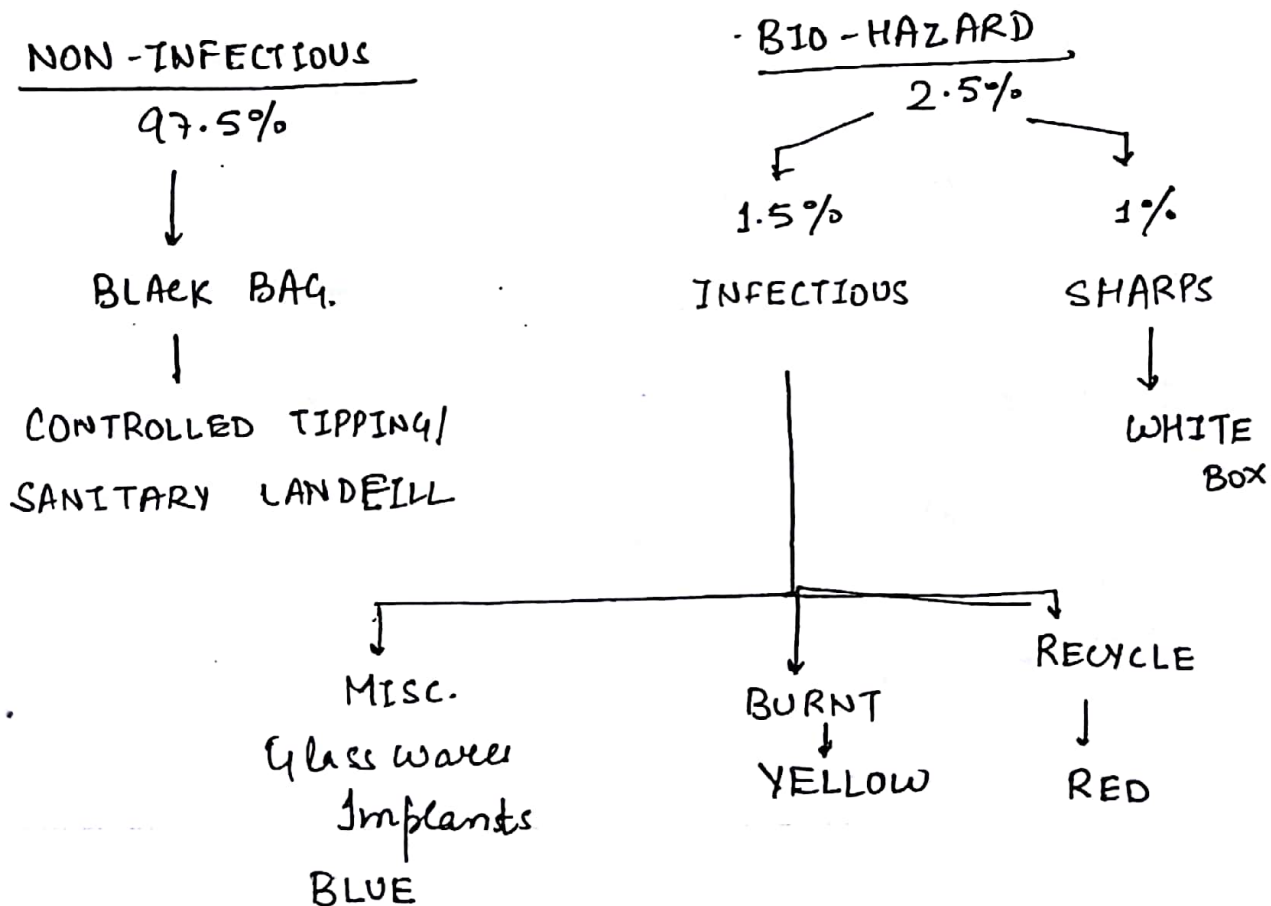 NON-INFECTIOUS
97.5%
BLACK BAG.
CONTROLLED TIPPING/
SANITARY LANDFILL
BIO-HAZARD
2.5%
1.5%
INFECTIOUS
1%
SHARPS
WHITE
BOX
MISC.
Glass wares
Implants
BLUE
BURNT
YELLOW
RECYCLE
RED